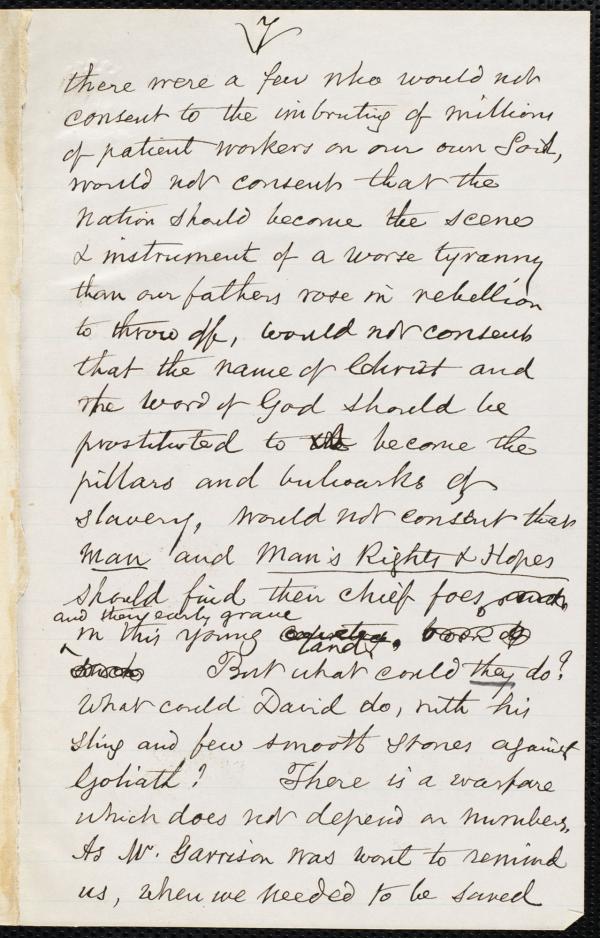 7
there were a few who would not
consent to the imbruting of millions
of patient workers on our own Soil,
would not consent that the
Nation should become the scene
& instrument of a worse tyranny
than our fathers rose in rebellion
to throw off, would not consent
that the name of Christ and
the word of God should be
prostituted to become the
pillars and bulwarks of
slavery, would not consent that
Man and Man's Rights & Hopes
should find their chief foes,
and their early grave
in this young
land.
But what could they do?
What could David do, with his
sling and few smooth stones against
Goliath? There is a warfare
which does not depend on numbers,
As Mr. Garrison was wont to remind
us, when we needed to be saved